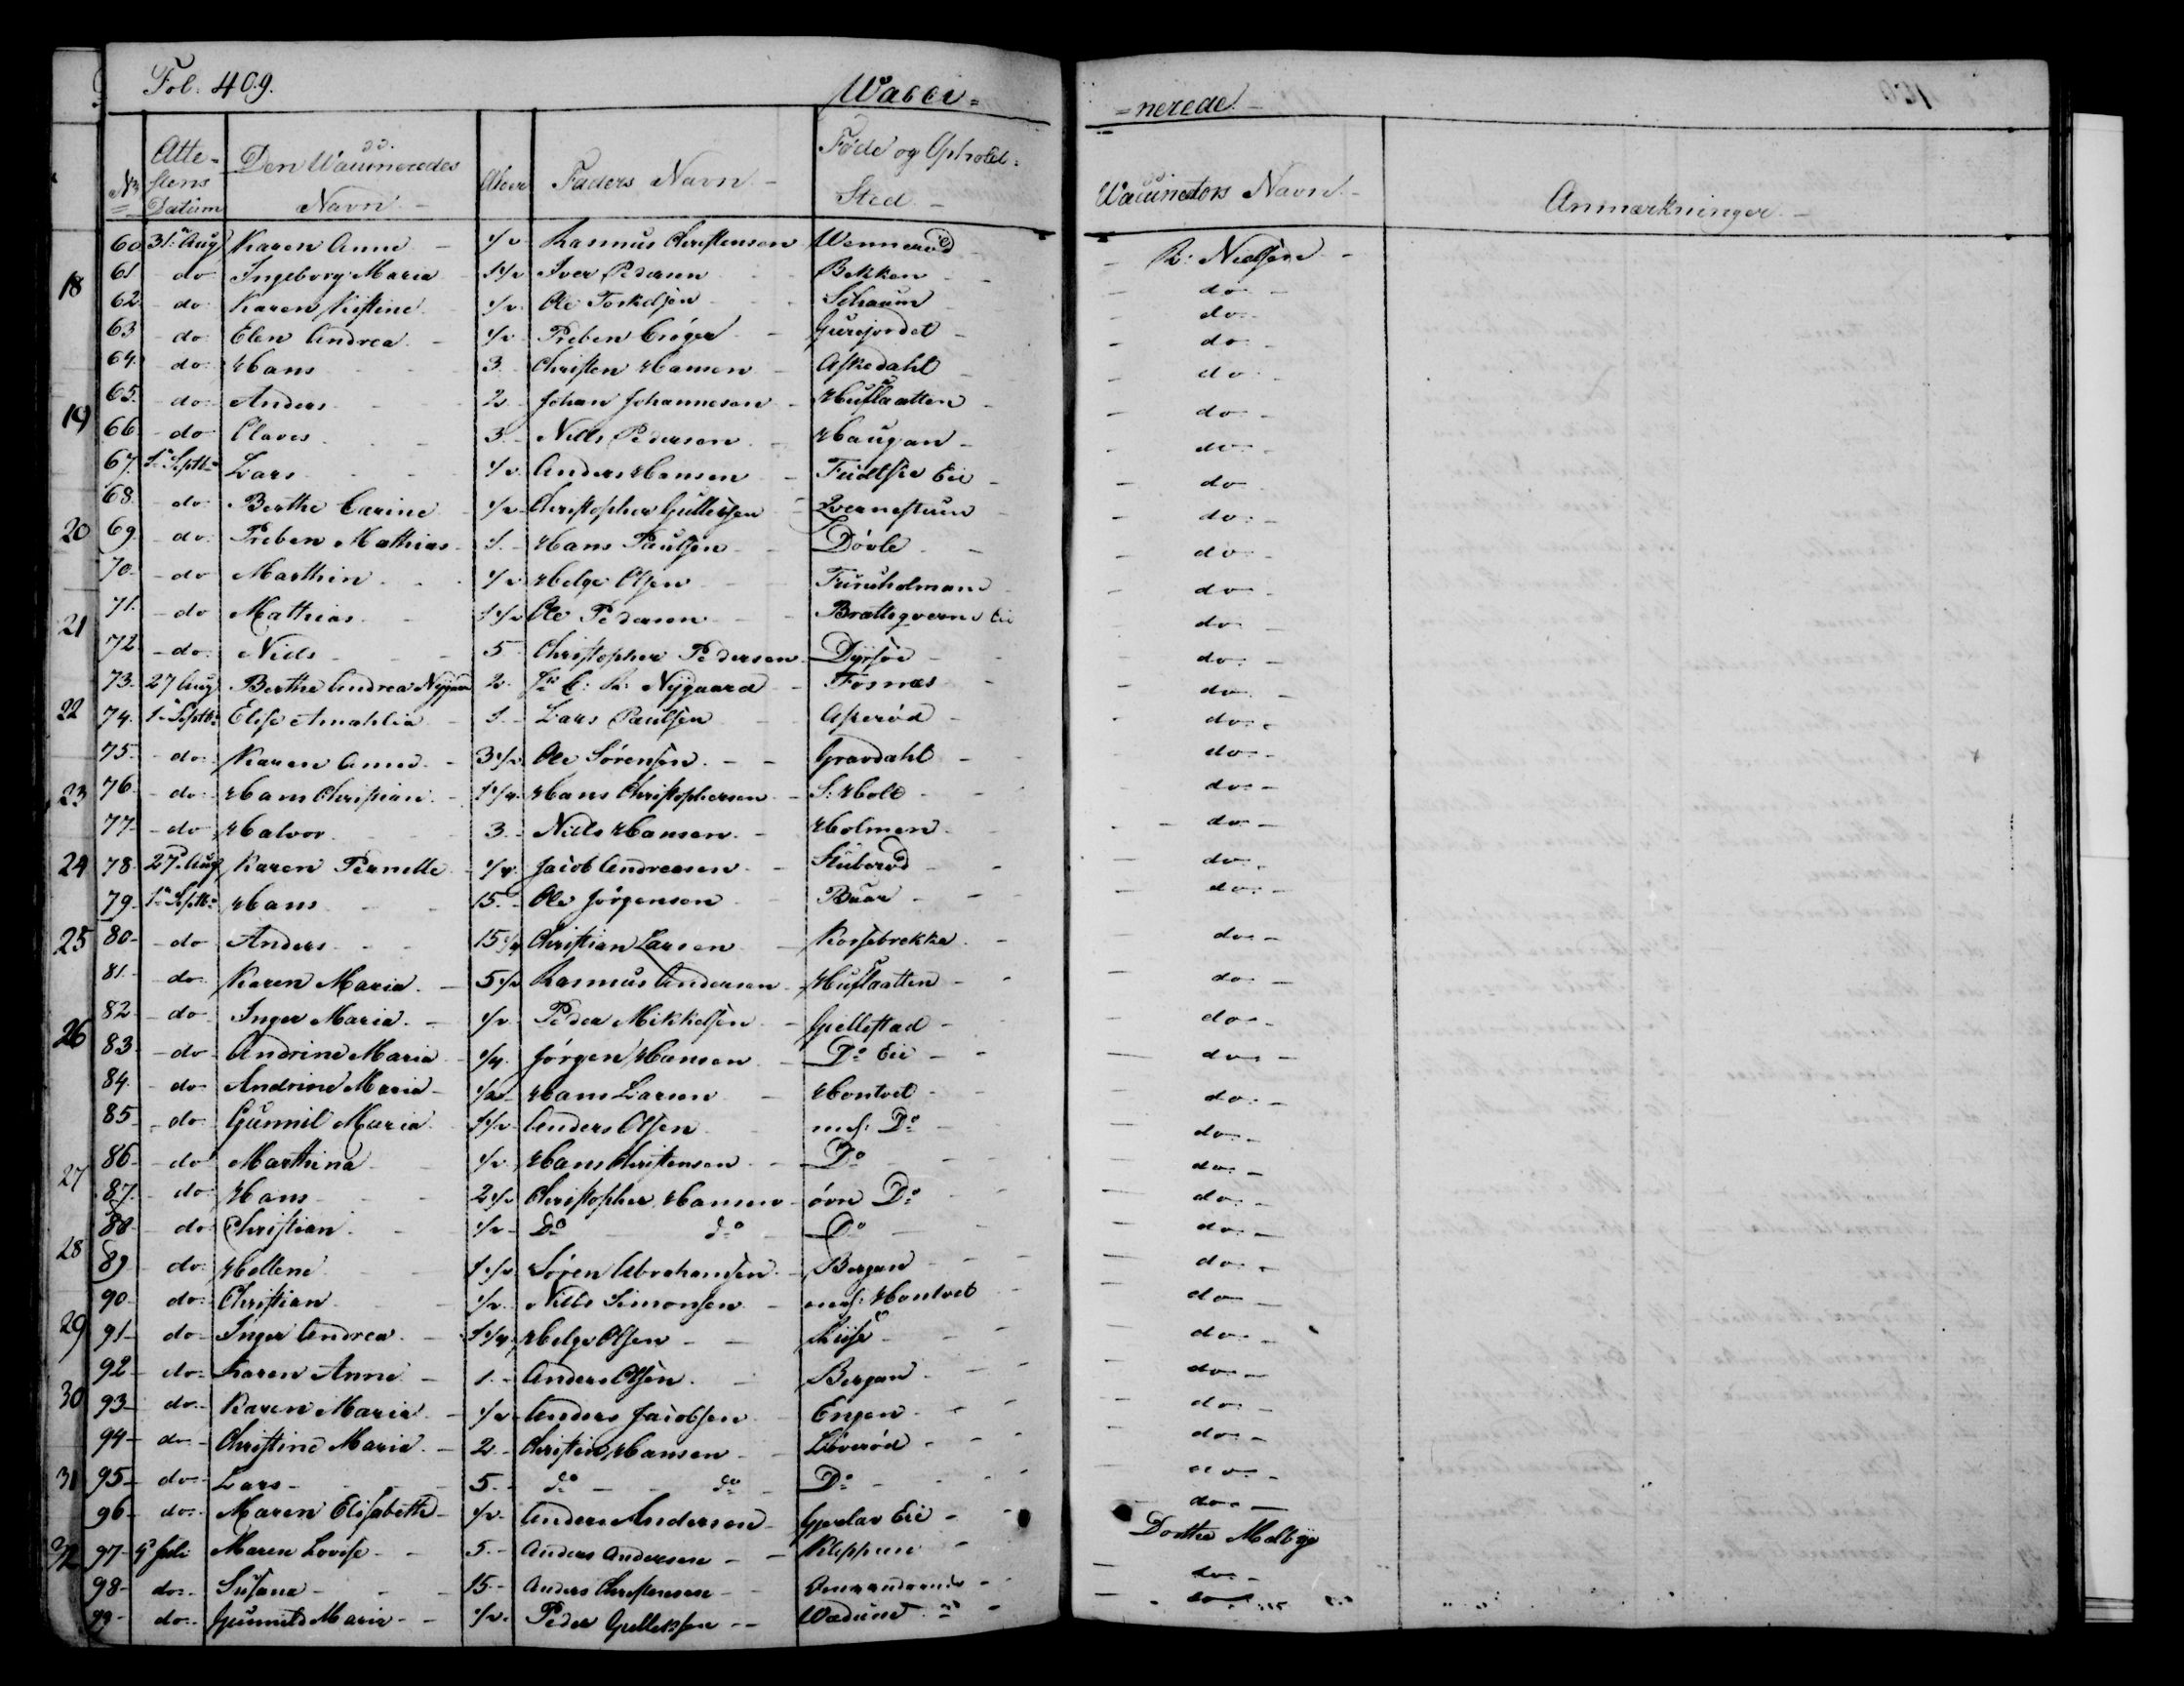 Fol. 409. Vacci=
=nerede.
No Atte-stens Datum Den Vaccineredes Navn Alder Faders Navn Føde og Ophold-Sted Vaccinators Navn Anmærkninger
60 31. Aug Karen Anne 1/2 Rasmus Christensen R: Nielsen
61 do Ingeborg Maria 1 1/2 Iver Pedersen Bekken do
62 do Karen Kistine 1/2 Ole Torkelsen Schaum do
63 do Elen Andrea 1/2 Preben do
64. do Hans 3. Christen Hansen Askedahl do
65. do Anders 2 Johan Johannesen Husflaatten do
66. do Claves 3. Niels Pedersen Haugan do
67. 1. Septbr Lars 1/2 Anders Hansen Eie do
68. do Berthe Carine 1/2 Christopher Gullersen do
69. do Preben Mathias 1. Hans Paulsen Døvle do
70. do Marthin 1/2 Helge Olsen do
71. do Mathias 1 1/2 Ole Pedersen Eie do
72 do Niels 5 Christopher Pedersen do
73. 27 Aug Berthe Andrea Nygaard 2. Nygaard Fosnæs do
74. 1. Septbr Elise Amahlia 1. Lars Paulsen Askerød do
75. do Karen Anne 3 1/2 Ole Sørensen Gravdahl do
76. do Hans Christian 1 1/4 Hans Christophersen S: Holt do
77. do Halvor 3. Niels Hansen Holmen do
78. 27. Aug Karen Pernille Jacob Andreasen Stuberød do
79. 1. Septbr Hans 15. Ole Jørgensen Buar do
80. do Anders Christian Larsen Korsebrekke do
81. do Karen Maria 5 1/2 Rasmus Andersen Husflaatten do
82. do Inger Maria 1/2 Peder Mikkelsen Gjellestad do
83. do Andrine Maria 1/4 Jørgen Hansen Do Eie do
84. do Andrine Maria 1/2 Hans Larsen Hontvet do
85 do Gunnil Maria 1 1/2 Anders Olsen Do do
86 do Marthina 1/2 Hans Christensen Do do
87. do Hans 2 1/2 Christopher Hansen øvre Do do
88 do Christian 1/2 Do do Do do
89 do Hellene 1 1/2 Søren Abrahamsen Bergan do
90 do Christian 1/2 Niels Simonsen Hontvet do
91 do Inger Andrea 1 1/4 Helge Olsen do
92 do Karen Anne 1. Anders Olsen Bergan do
93 do Karen Maria 1/2 Anders Jacobsen Engen do
94 do Christine Maria 2 Christen Hansen Løverød do
95 do Lars 5. do do Do do
96 do Maren Elisabeth 1/2 Anders Andersen Eie do
97 Juli Maren Lovise 5. Anders Andersen Dorthe Melbye
98 do Susane 15 Anders Christensen do
99 do Gunnild Marie 1/2 Peder do
18
19
20
21
22
23
24
25
26
27
28
29
30
31
32